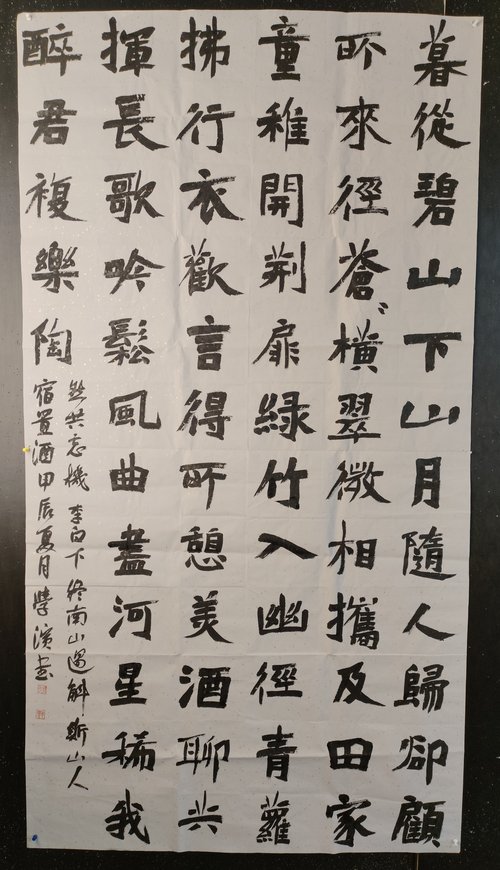 暮從碧山下山月隨人歸卻顧
所來徑蒼〻橫翠微相攜及田家
童稚開荆扉綠竹入幽徑青蘿
拂行衣歡言得所憩美酒聊共
揮長歌吟鬆風曲盡河星稀我
醉君複樂陶
然共忘機 李白下終南山過斛斯山人
宿置酒甲辰夏月學書